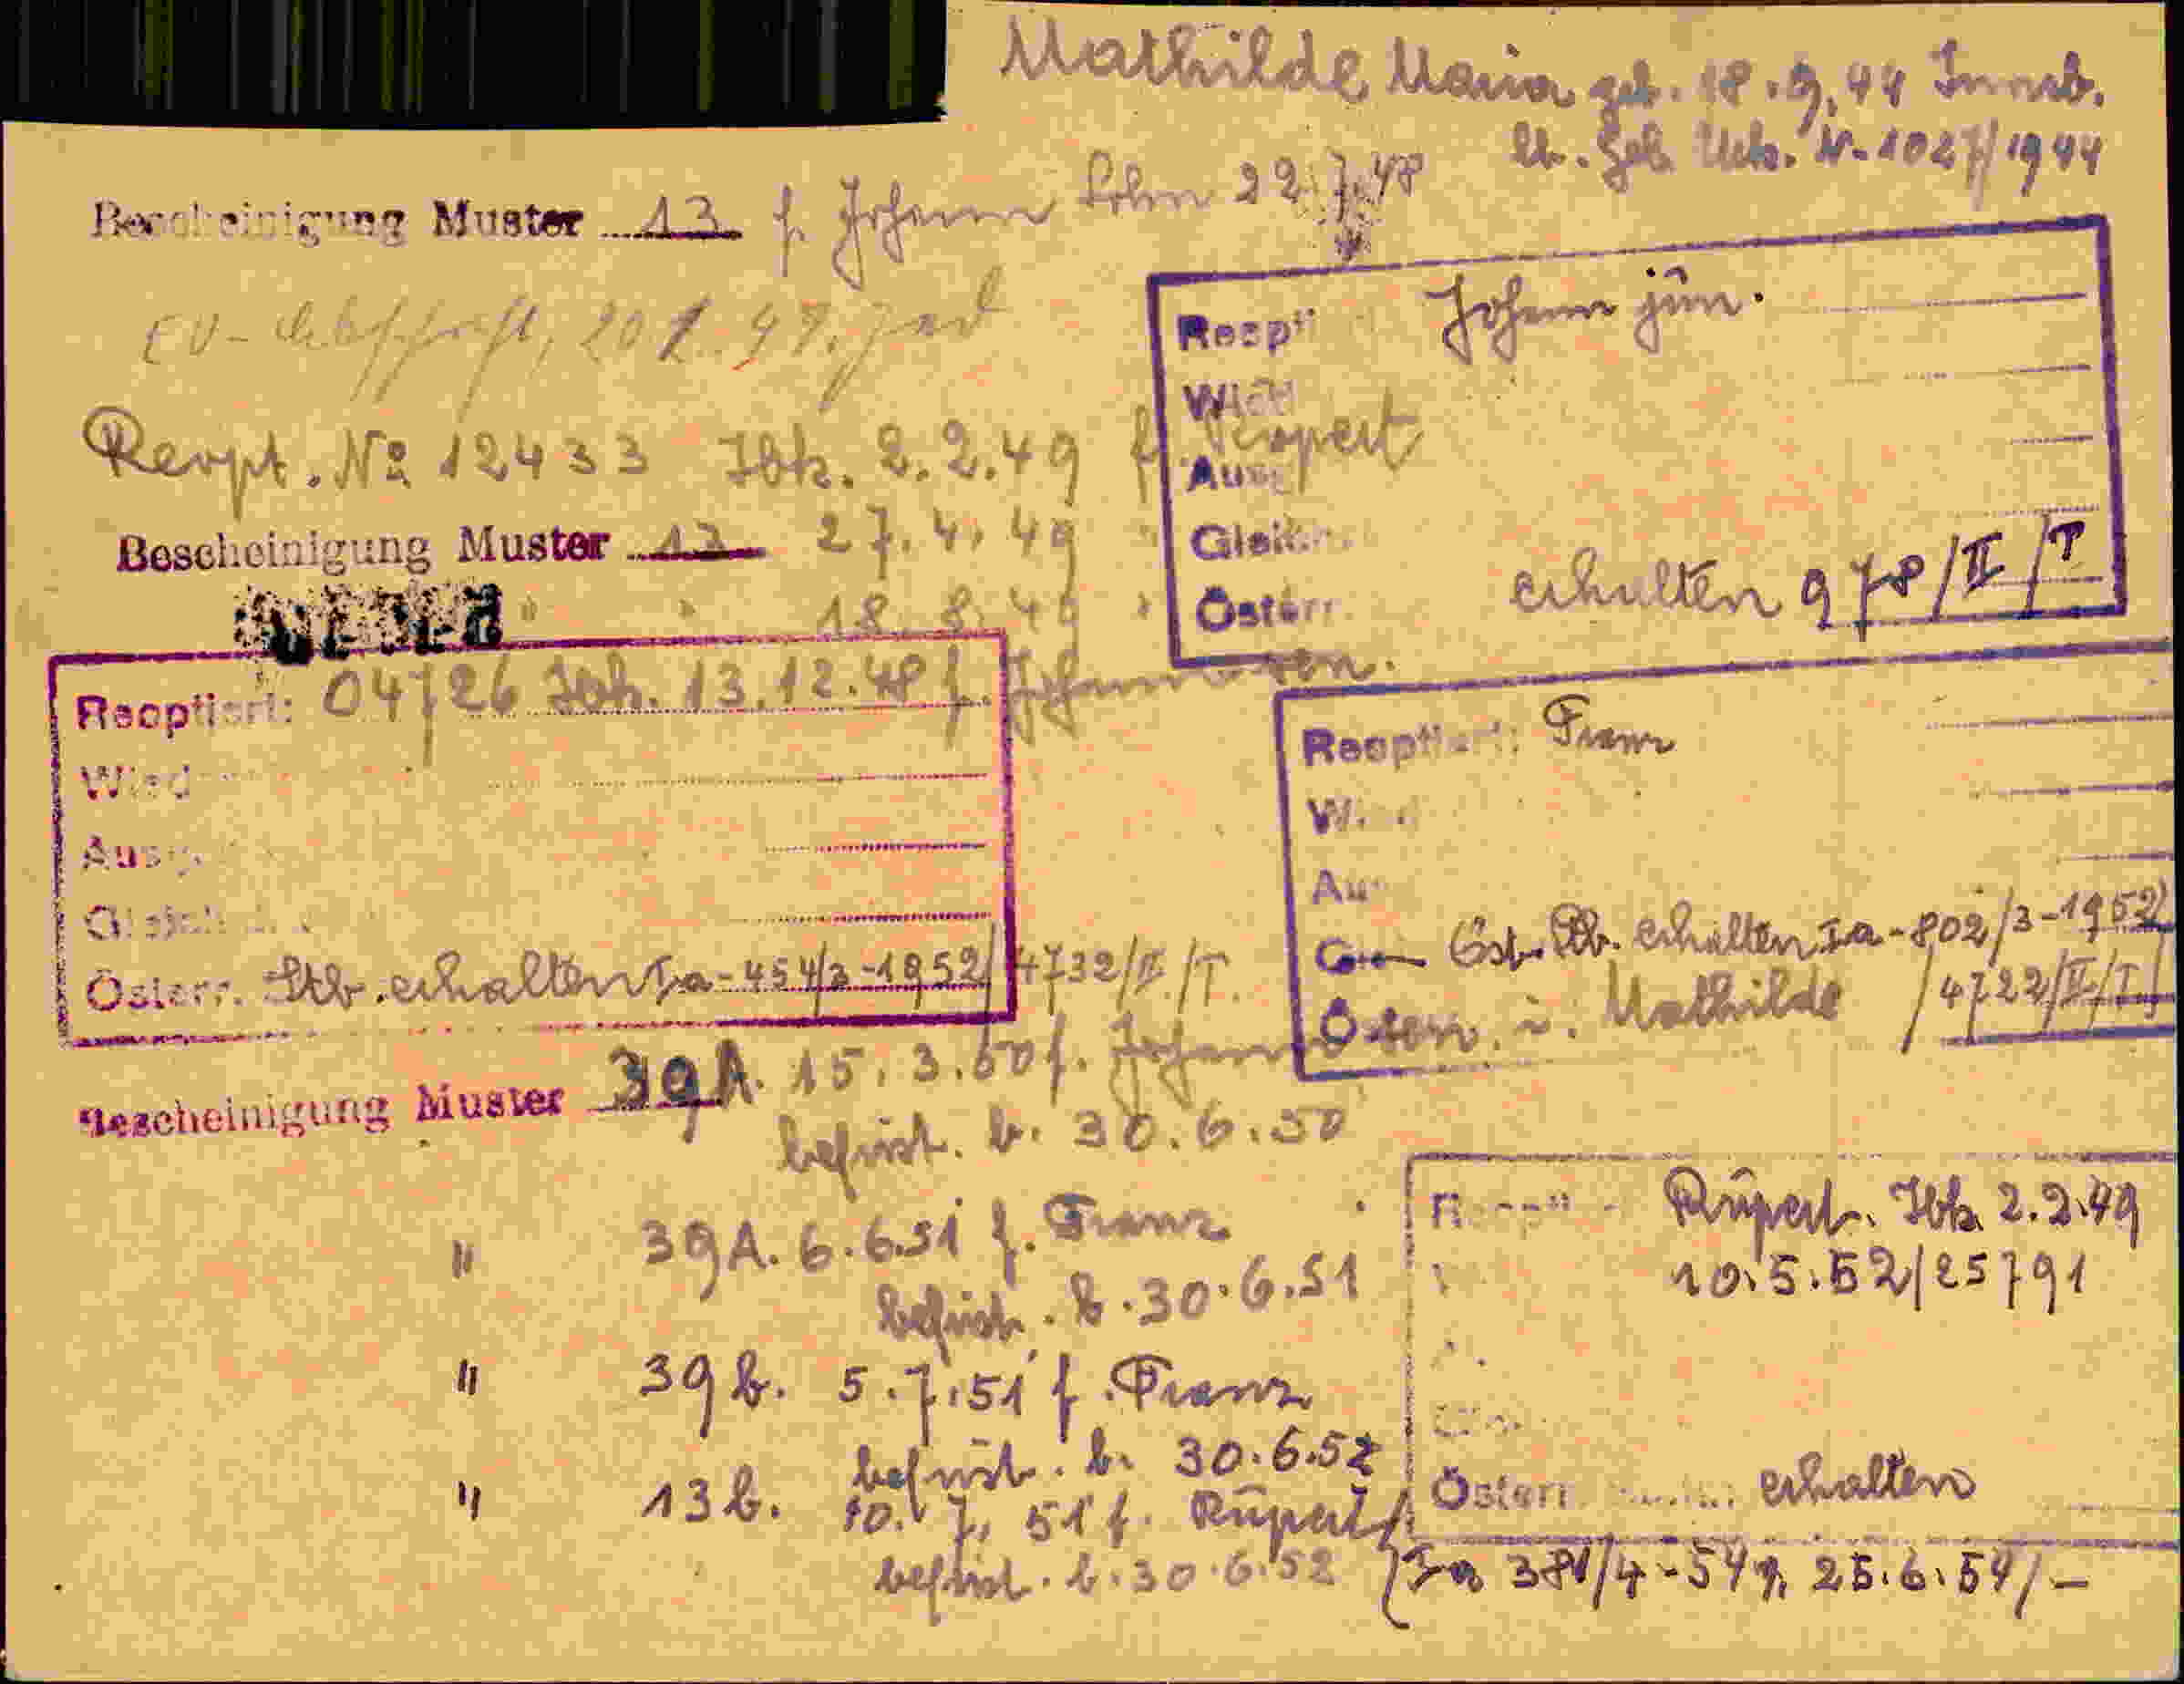 Mathilde Maria geb. 18.9.44 Innsb.
lt. Geb. Urk. Nr. 1027/1944
Bescheinigung Muster 13 f. Johann Sohn 22.7.48
EV-Abschrift, 20. 49.
Reopt. No 12433 Ibk. 2.2.49 f. Rupert
Bescheinigung Muster 13 27.4.49 "
" " 18.8.49 "
Reopti Johann jun.
Wied
Ausg
Gleich
Österr. erhalten 978/II/T
Reoptiert: 04726 Ibk. 13.12.48 f. Johann sen.
Wied
Ausg.
Gleich
Österr. Stb. erhalten Ia-454/3-1952/4732/II/T.
Reoptiert: Franz
Wied
Au
Öst. Stb. erhalten Ia-802/3-1952/
Österr. u. Mathilde /4722/II/T/
Bescheinigung Muster 39A. 15.3.50 f. Johann sen.
befrist. b. 30.6.50
" 39A. 6.6.51 f. Franz
befrist. b. 30.6.51
" 39b. 5.7.51 f. Franz
befrist. b. 30.6.52
" 13b. 10.7.51 f. Rupert
befrist. b. 30.6.52
Reopti Rupert. Ibk. 2.2.49
10.5.52/25791
Österr. erhalten
/Ia 381/4-54 v. 25.6.54/-